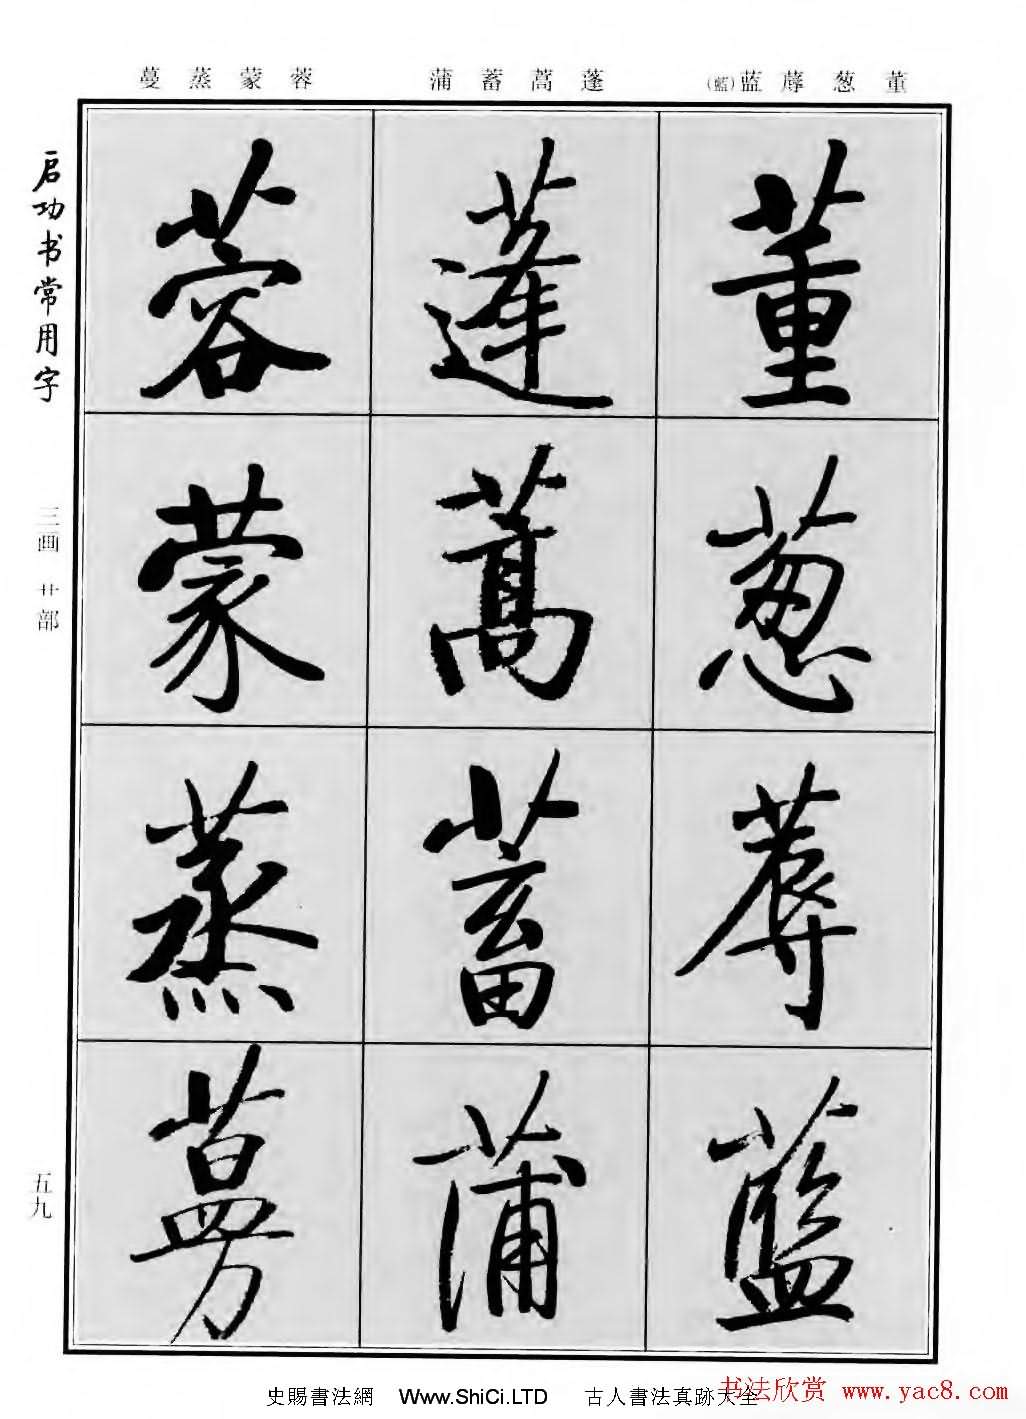 董 葱 蓐 蓝(藍)
蓬 蒿 蓄 蒲
蓉 蒙 蒸 蔓
启功书常用字
三画 艹部
五九
董
葱
蓐
藍
蓬
蒿
蓄
蒲
蓉
蒙
蒸
蔓
史賜書法網 Www.ShiCi.LTD 古人書法真跡大全
书法欣赏 www.yac8.com